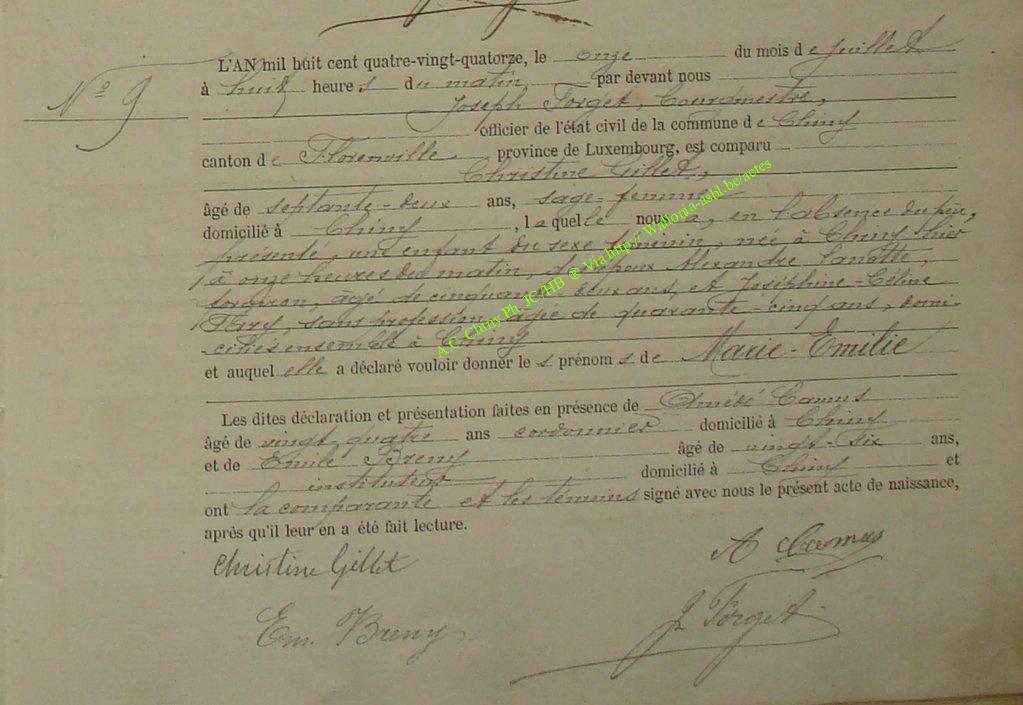 N° 9
L'AN mil huit cent quatre-vingt-quatorze, le onze du mois de juillet
à huit heures du matin par devant nous
Joseph Forget, Bourgmestre,
officier de l'état civil de la commune de Chiny
canton de Florenville province de Luxembourg, est comparu
Christine Gillet,
âgé de septante-deux ans, sage-femme
domicilié à Chiny, laquelle nous a, en l'absence du père,
présenté, une enfant du sexe féminin, née à Chiny hier
à onze heures du matin, d'époux Alexandre
forgeron, âgé de cinquante-deux ans, et Joséphine-Céline
sans profession, âgée de quarante-cinq ans, domi-
-ciliés ensemble à Chiny.
et auquel elle a déclaré vouloir donner les prénoms de Marie-Emilie
Les dites déclaration et présentation faites en présence de Camus
âgé de vingt quatre ans cordonnier domicilié à Chiny
et de Emile Breny âgé de vingt-six ans,
instituteur domicilié à Chiny et
ont la comparante et les témoins signé avec nous le présent acte de naissance,
après qu'il leur en a été fait lecture.
Christine Gillet
A Camus
Em. Breny
J Forget
A.C. Chiny Ph. JC/HB @ Via http:// Wallonia-asbl.be/actes